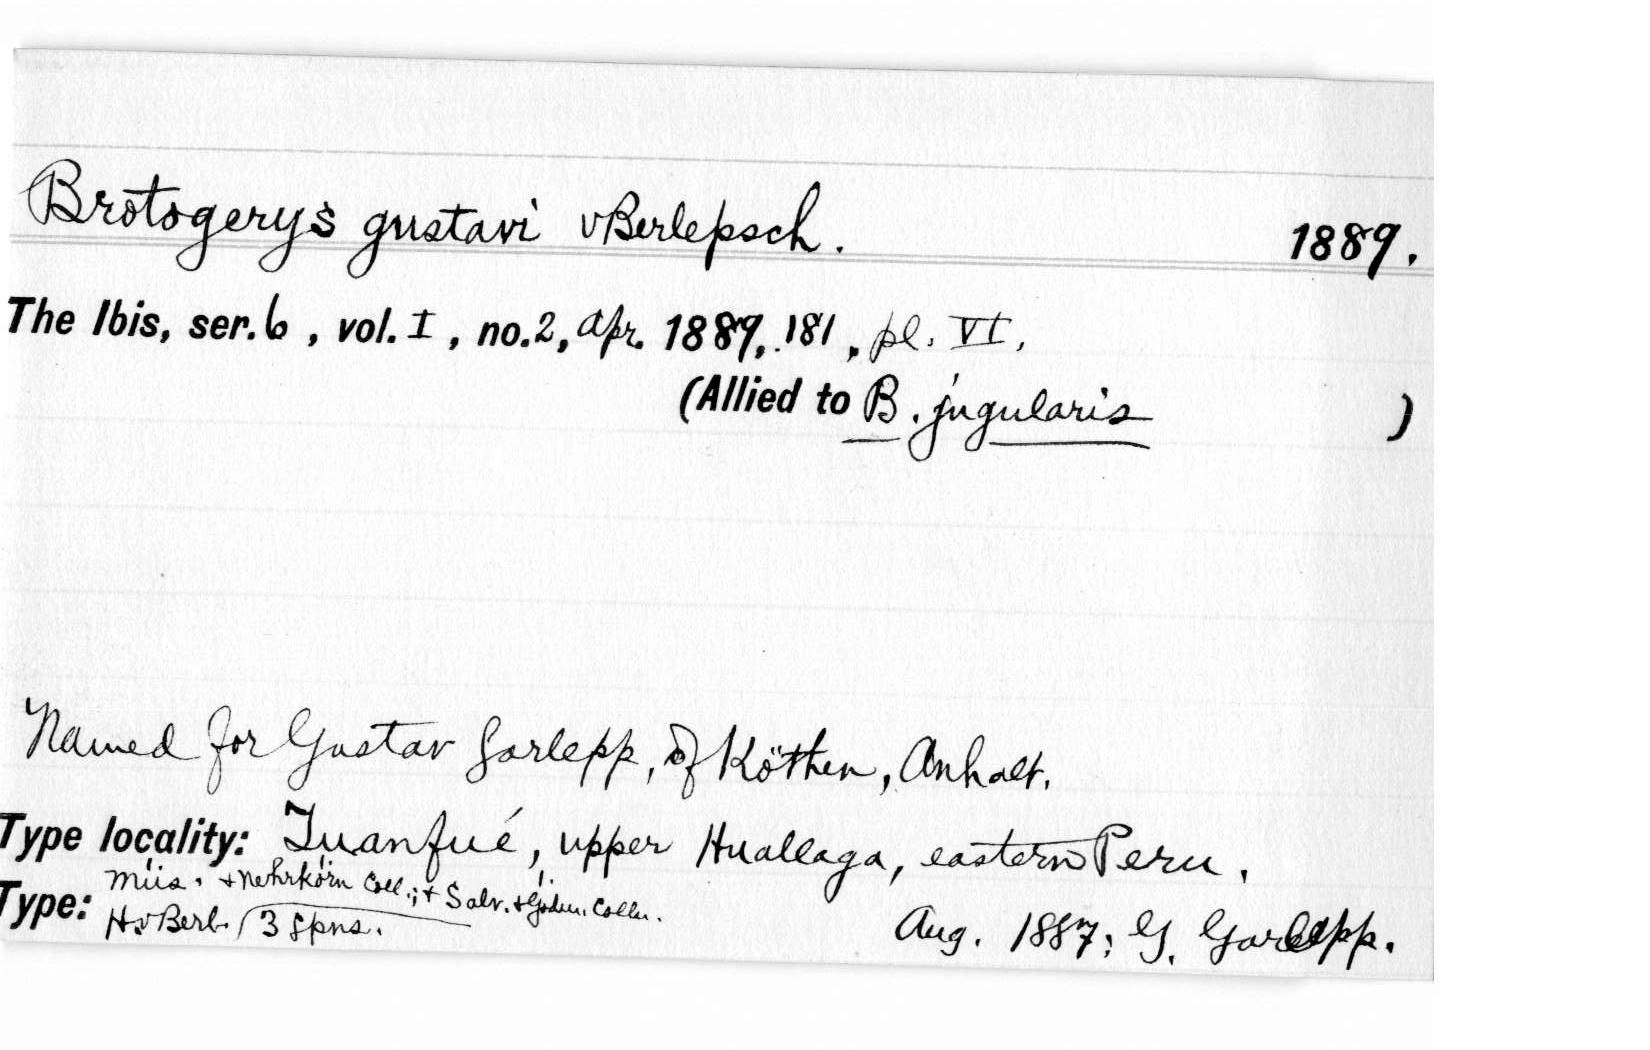 Brotogerys gustavi vBerlepsch. 1889.
The Ibis, ser. 6, vol. I, no. 2, Apr. 1889, 181, pl. VI.
(Allied to B. jugularis )
Named for Gustav Garlepp, of Köthen, Anhalt.
Type locality: Yuanfué, upper Huallaga, eastern Peru.
Mus. + Nehrkorn Coll.; + Salv. + Godm. Colln.
Type: H.v Berl. 3 spns. Aug. 1887; G. Garlepp.